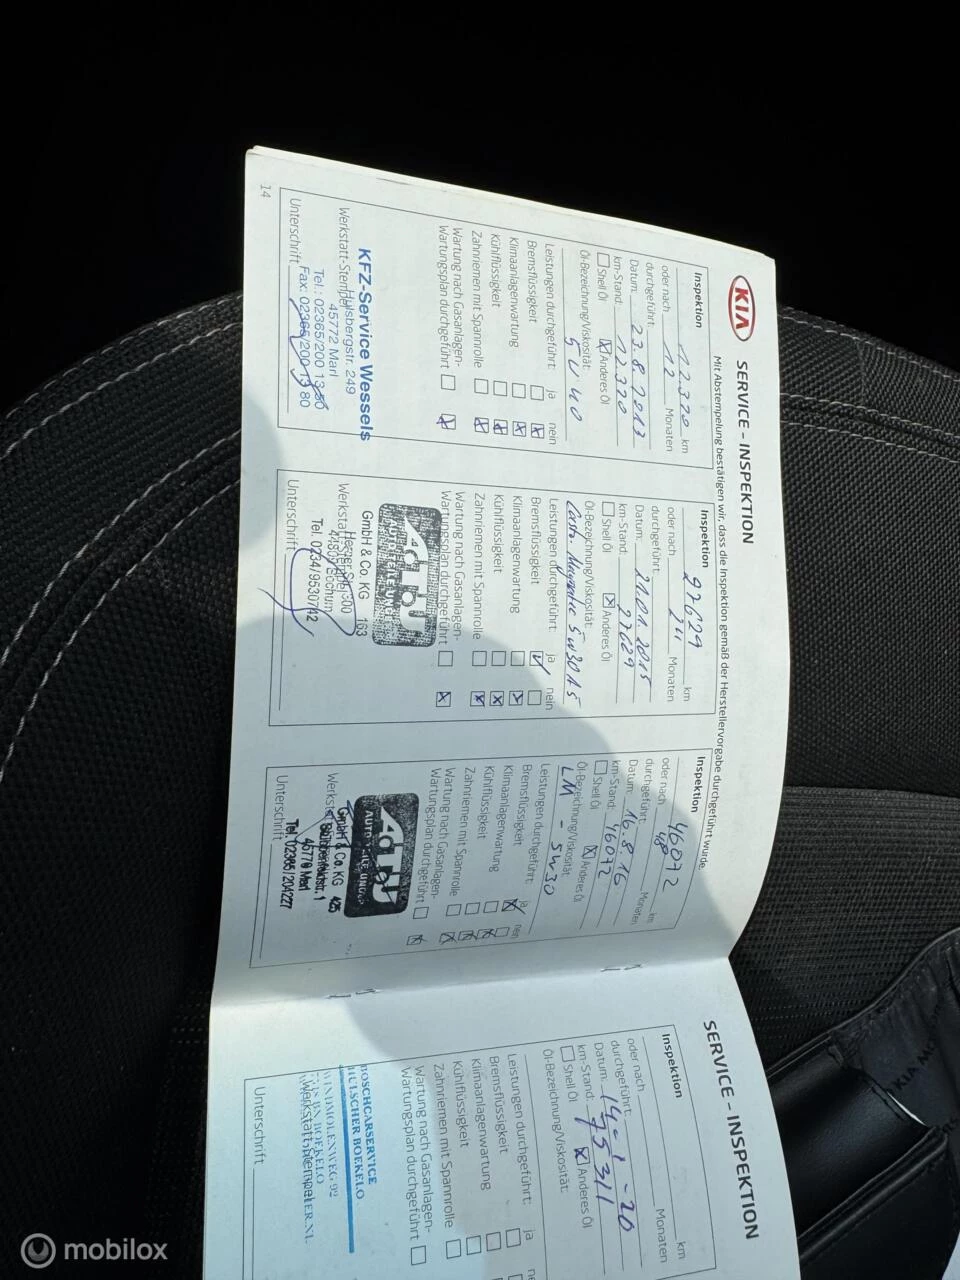 KIA SERVICE - INSPEKTION
Mit Abstempelung bestätigen wir, dass die Inspektion gemäß der Herstellervorgabe durchgeführt wurde.
Inspektion
12.320 km
oder nach 12 Monaten
durchgeführt:
Datum: 23.8.2013
km-Stand: 12.320
Shell Öl Anderes Öl
Öl-Bezeichnung/Viskosität:
5W40
Leistungen durchgeführt: ja nein
Bremsflüssigkeit
Klimaanlagenwartung
Kühlflüssigkeit
Zahnriemen mit Spannrolle
Wartung nach Gasanlagen-
Wartungsplan durchgeführt
KFZ-Service Wessels
Hülsbergstr. 249
Werkstatt-Stempel
45772 Marl
Tel.: 02365/200 13 50
Fax: 02365/200 13 80
Unterschrift
14
Inspektion
27629 km
oder nach 24 Monaten
durchgeführt:
Datum: 21.01.2015
km-Stand: 27629
Shell Öl Anderes Öl
Öl-Bezeichnung/Viskosität:
5W30
Leistungen durchgeführt: ja nein
Bremsflüssigkeit
Klimaanlagenwartung
Kühlflüssigkeit
Zahnriemen mit Spannrolle
Wartung nach Gasanlagen-
Wartungsplan durchgeführt
AUTOTEILE UNGER
GmbH & Co. KG 163
Werkstatt-Stempel
44809 Bochum
Tel. 0234/9530712
Unterschrift
Inspektion
46072 km
oder nach 48 Monaten
durchgeführt:
Datum: 16.8.16
km-Stand: 46072
Shell Öl Anderes Öl
Öl-Bezeichnung/Viskosität:
LM - 5W30
Leistungen durchgeführt: ja nein
Bremsflüssigkeit
Klimaanlagenwartung
Kühlflüssigkeit
Zahnriemen mit Spannrolle
Wartung nach Gasanlagen-
Wartungsplan durchgeführt
AUTOTEILE UNGER
GmbH & Co. KG 425
45770 Marl
Tel. 02365/204227
Unterschrift
SERVICE - INSPEKTION
Inspektion
km
oder nach Monaten
durchgeführt:
Datum: 14-1-20
km-Stand: 75311
Shell Öl Anderes Öl
Öl-Bezeichnung/Viskosität:
Leistungen durchgeführt: ja ne
Bremsflüssigkeit
Klimaanlagenwartung
Kühlflüssigkeit
Zahnriemen mit Spannrolle
Wartung nach Gasanlagen-
Wartungsplan durchgeführt
BOSCHCARSERVICE
HULSCHER BOEKELO
WINDMOLENWEG 92
BOEKELO
Werkstatt-Stempel
Unterschrift
KIA MO
mobilox